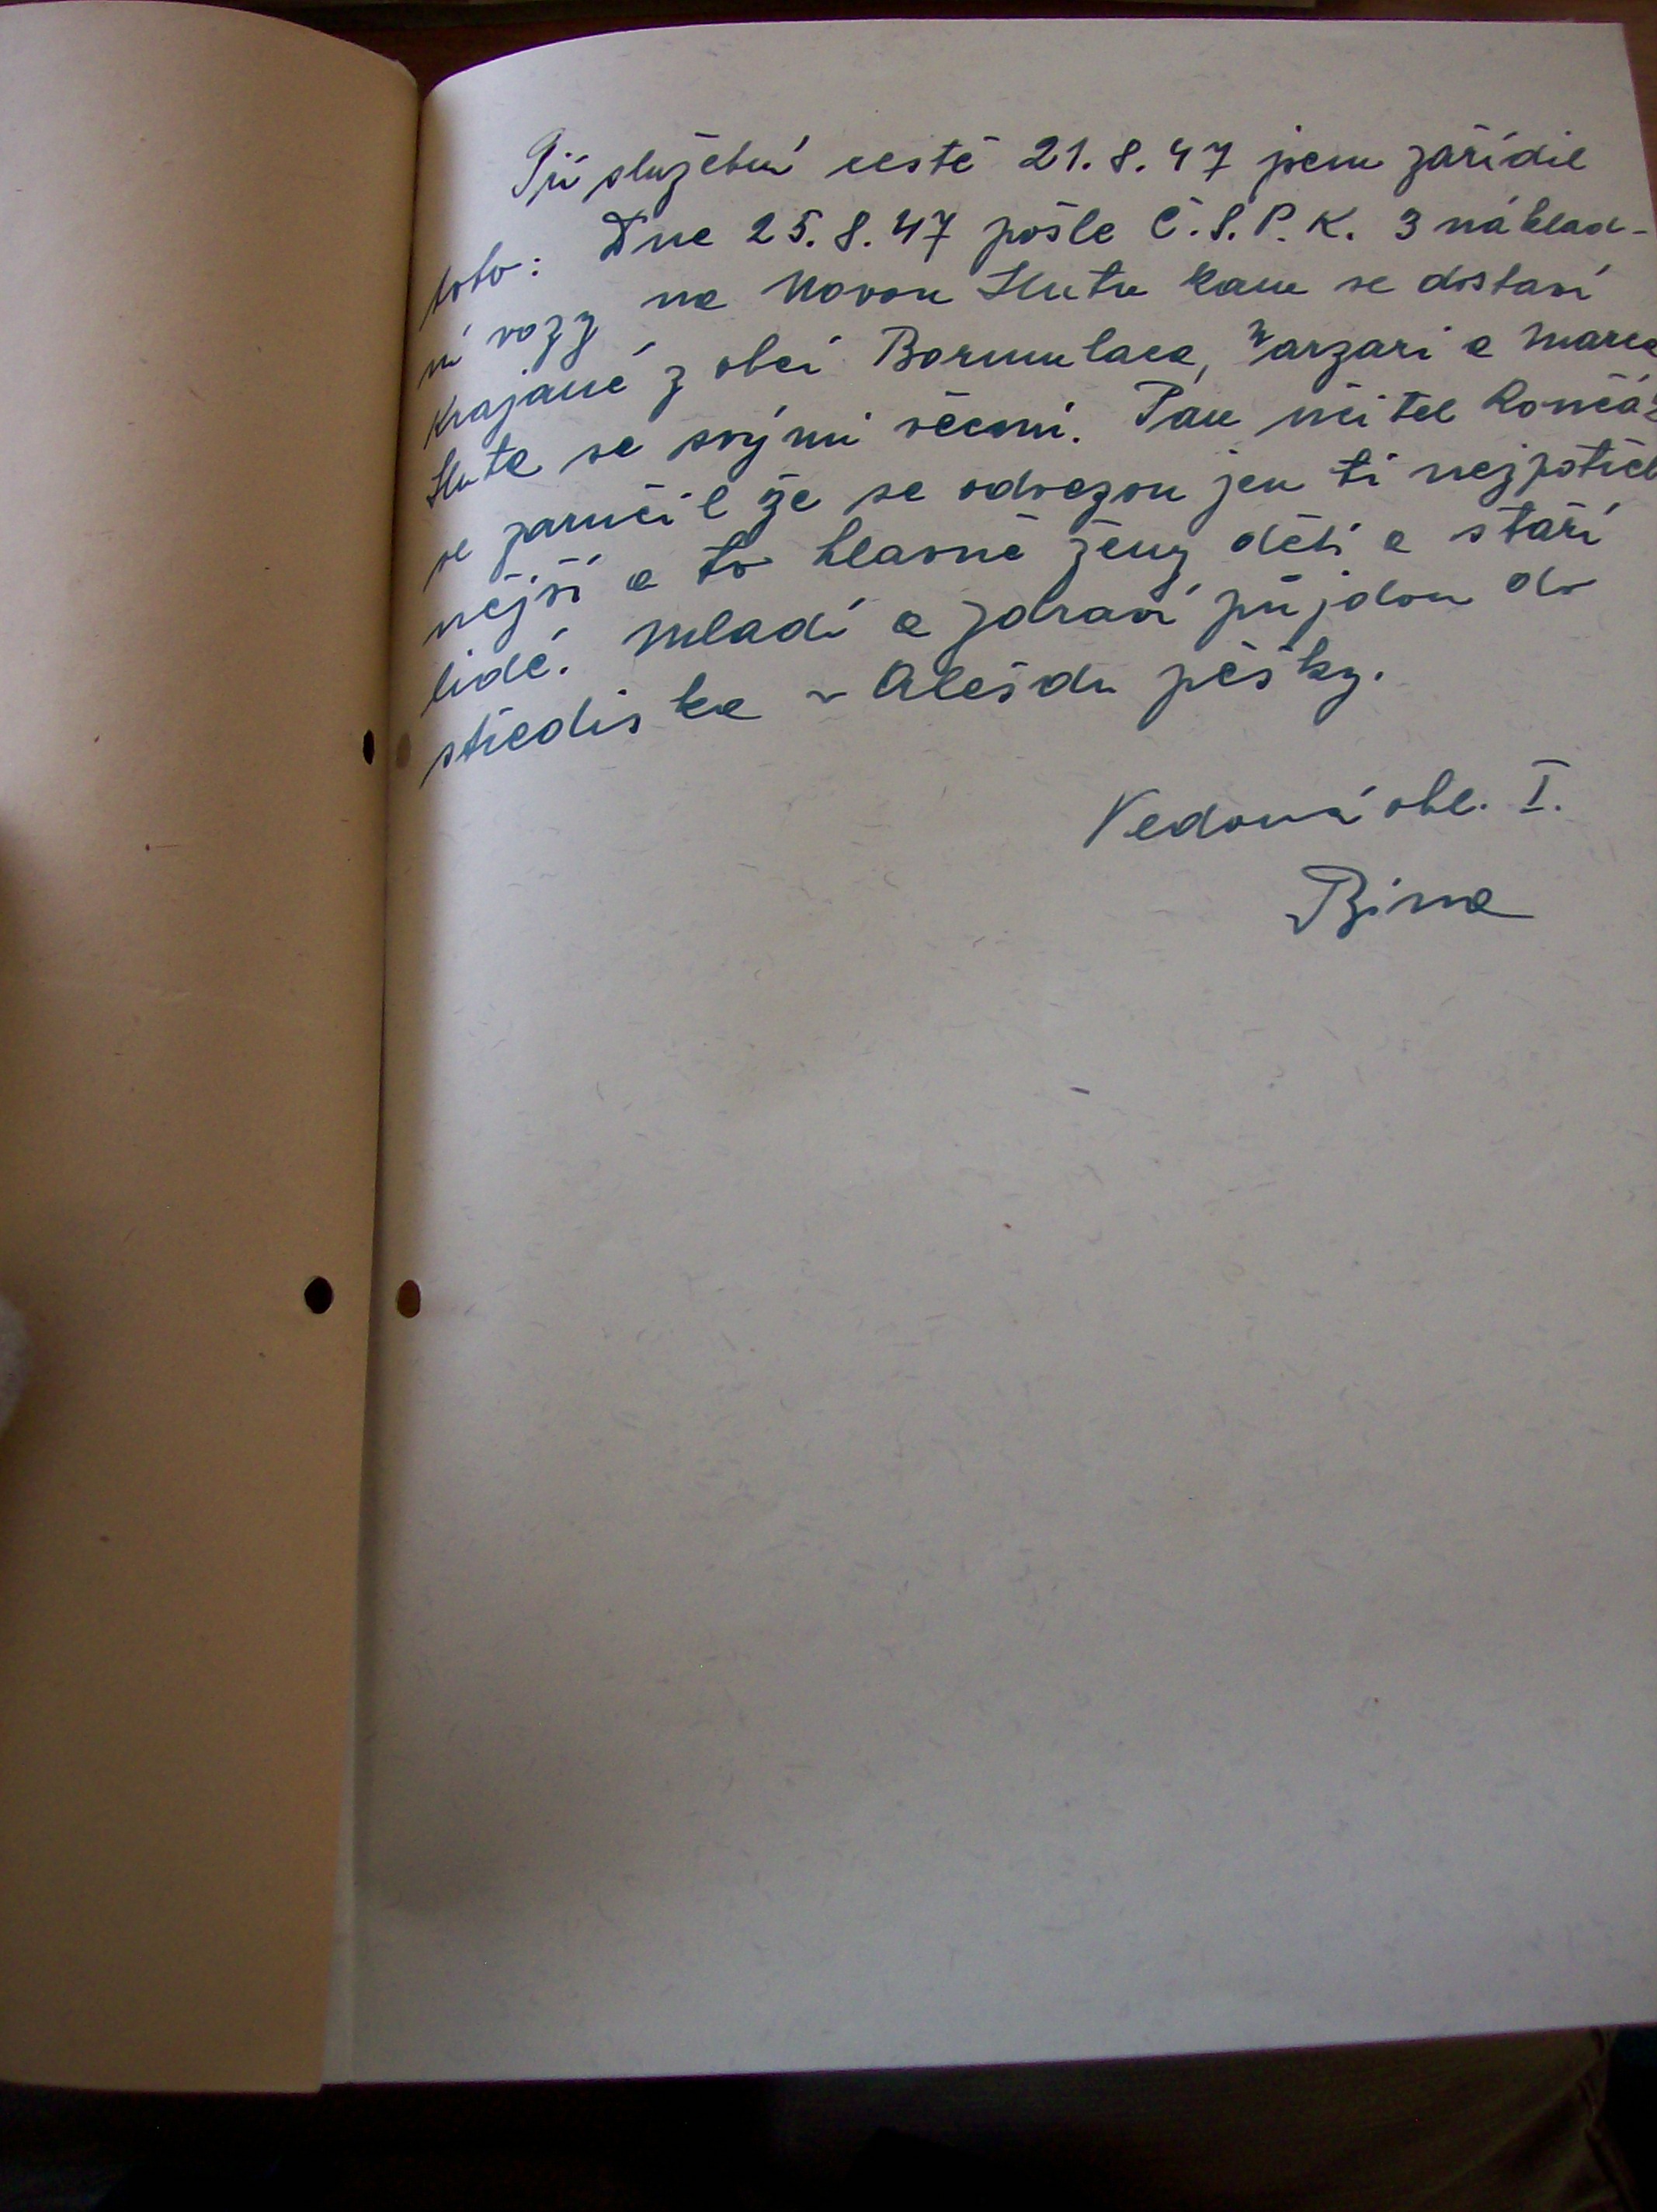 Při služební cestě 21.8.47 jsem zařídil
toto: Dne 25.8.47 pošle Č.S.P.K. 3 náklad-
ní vozy na Novou Hutu kam se dostaví
Krajané z obcí Borumlaca, Varzari a Marca
Huta se svými věcmi. Pan učitel Končá
se zaručil že se odvezou jen ti nejpotřeb
nější a to hlavně ženy děti a staří
lidé. Mladí a zdraví půjdou do
střediska v Alešdu pěšky.
Vedoucí obl. I.
Bina